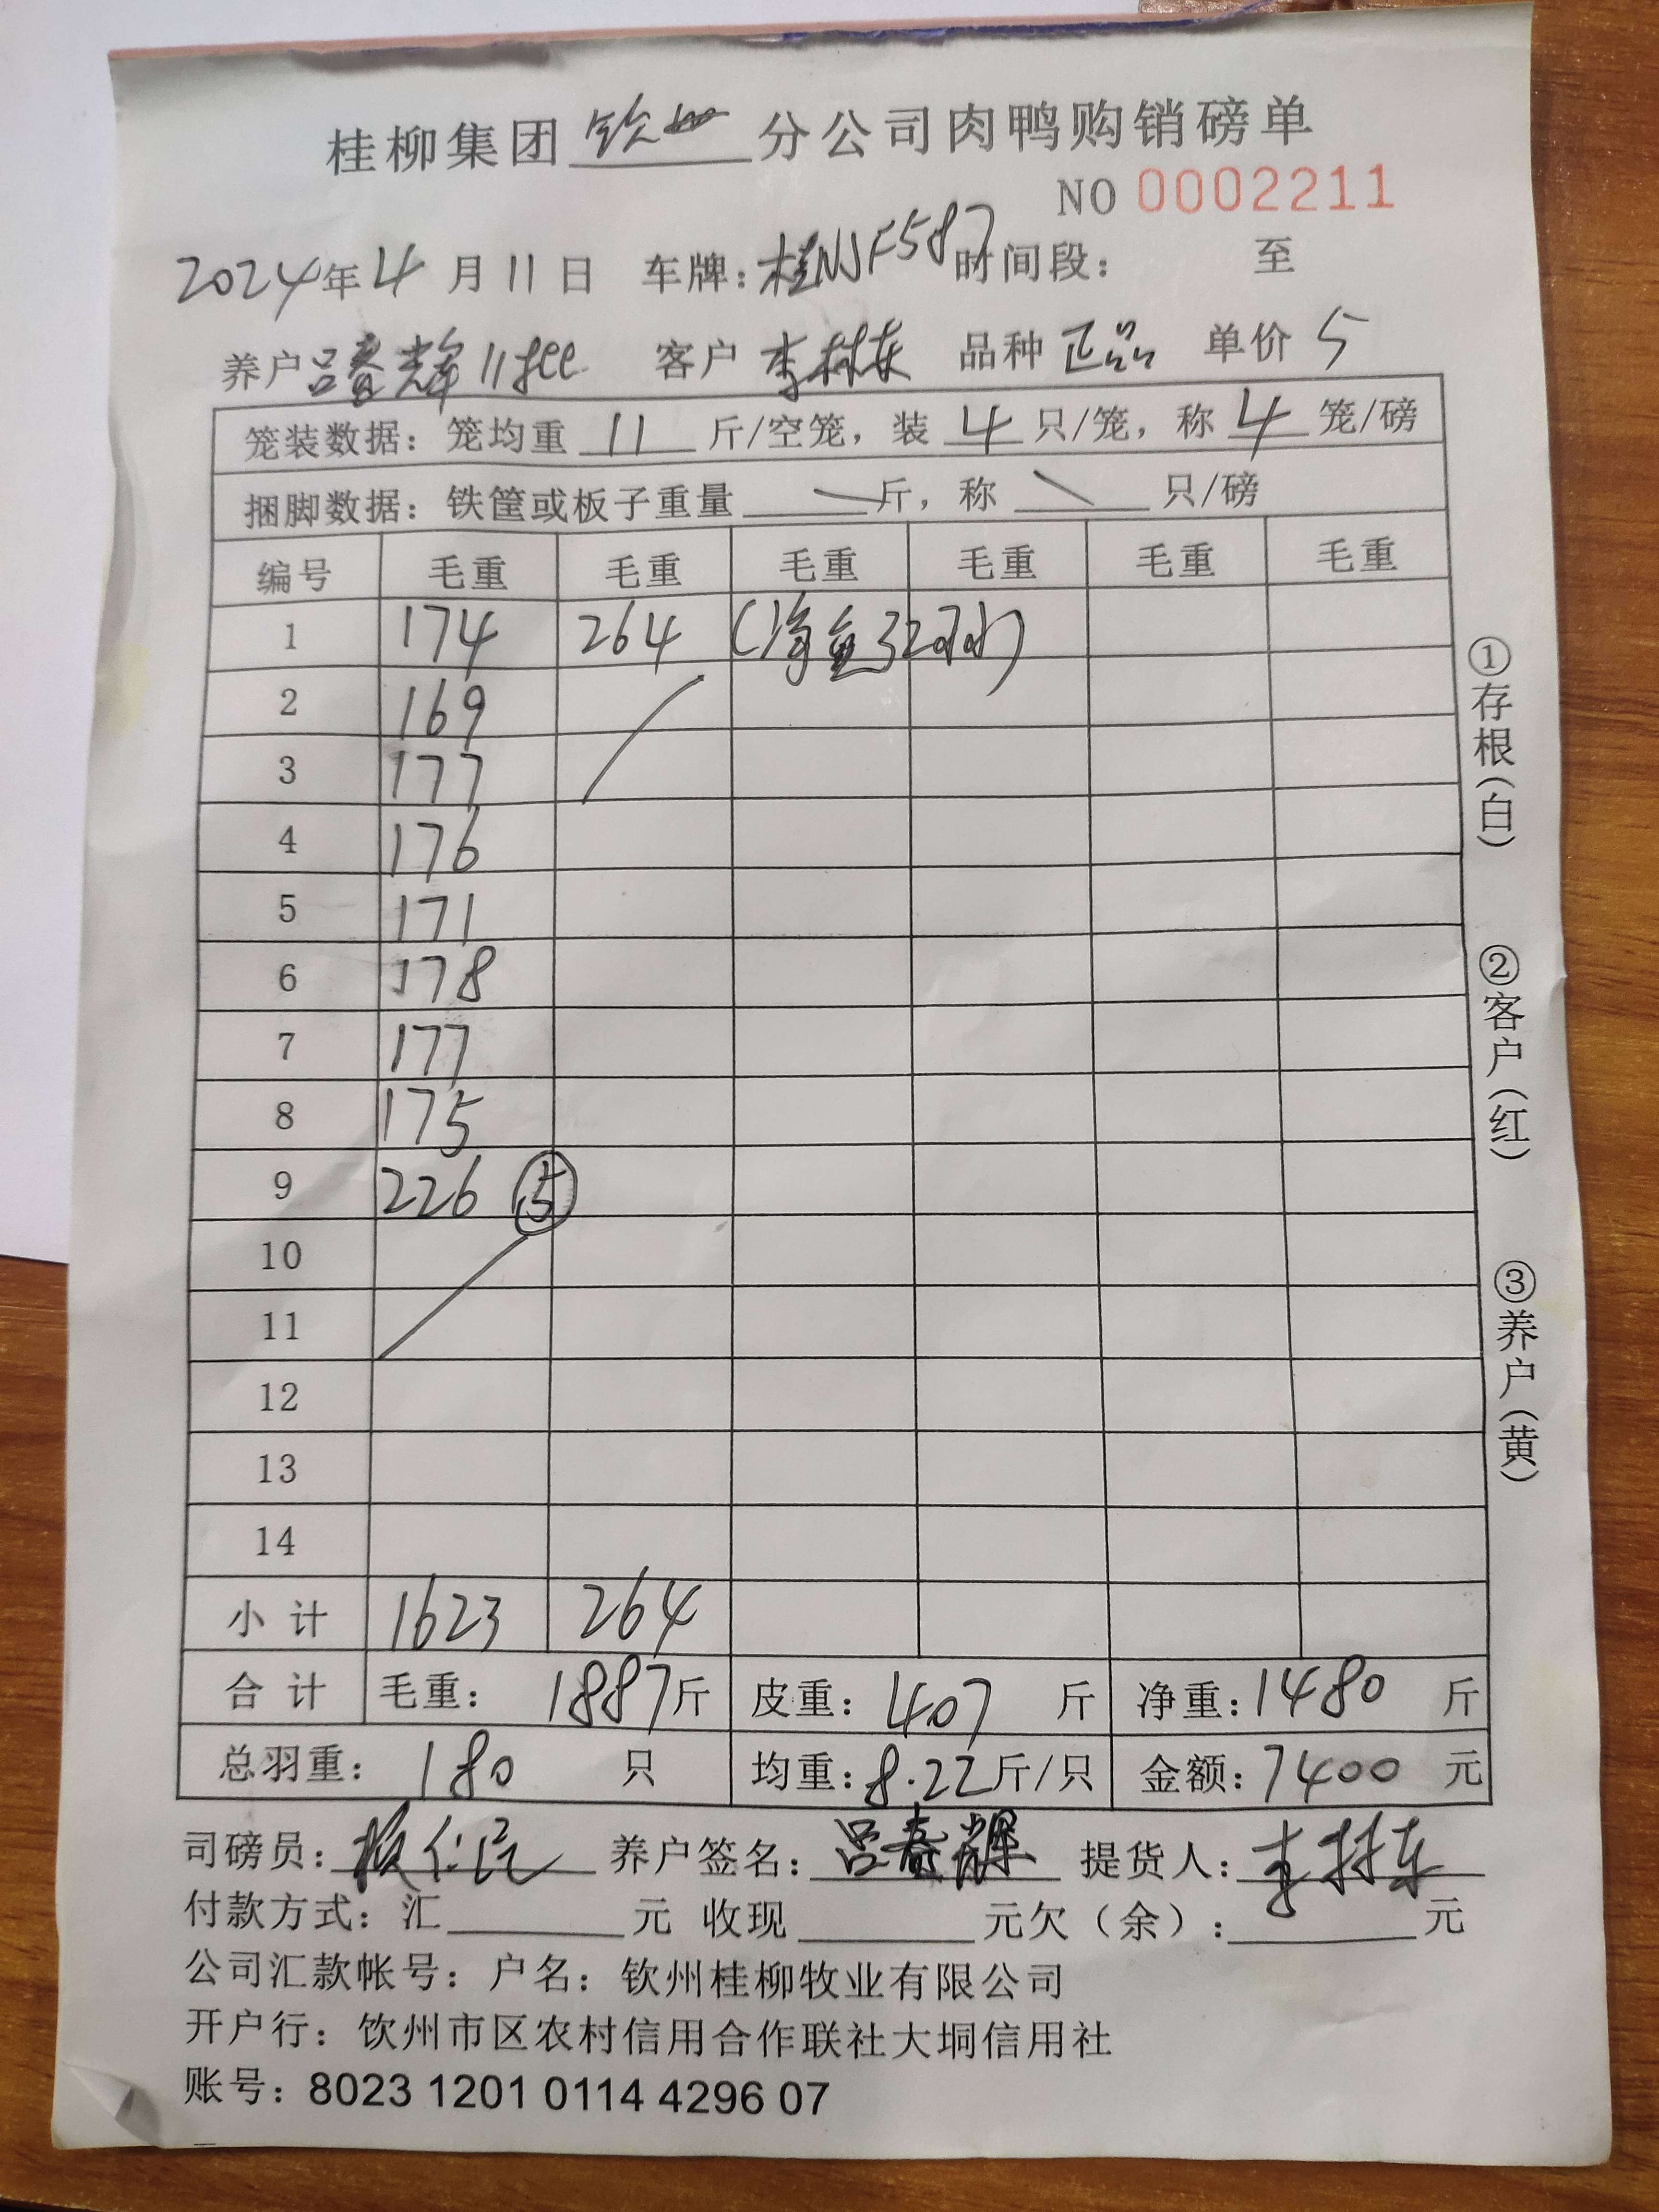 桂柳集团钦州分公司肉鸭购销磅单
NO 0002211
2024年4月11日 车牌:桂NJF587 时间段: 至
养户吕春辉 客户李村东 品种正品 单价5
笼装数据:笼均重11斤/空笼,装4只/笼,称4笼/磅
捆脚数据:铁筐或板子重量 斤,称 只/磅
编号 毛重 毛重 毛重 毛重 毛重 毛重
1 174 264 (净重32only)
2 169
3 177
4 176
5 171
6 178
7 177
8 175
9 226 ⑤
10
11
12
13
14
小计 1623 264
合计 毛重:1887斤 皮重:407斤 净重:1480斤
总羽重:180只 均重:8.22斤/只 金额:7400元
司磅员: 养户签名:吕春辉 提货人:李村东
付款方式:汇 元 收现 元欠(余): 元
公司汇款帐号:户名:钦州桂柳牧业有限公司
开户行:饮州市区农村信用合作联社大垌信用社
账号:8023 1201 0114 4296 07
①存根(白)
②客户(红)
③养户(黄)